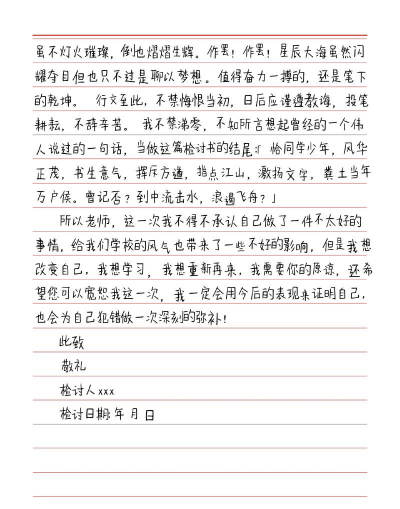 虽不灯火璀璨，倒也熠熠生辉。作罢！作罢！星辰大海虽然闪
耀夺目但也只不过是聊以梦想。值得奋力一搏的，还是笔下
的乾坤。 行文至此，不禁悔恨当初，日后应谨遵教诲，投笔
耕耘，不辞辛苦。 我不禁涕零，不知所言想起曾经的一个伟
人说过的一句话，当做这篇检讨书的结尾：「恰同学少年，风华
正茂，书生意气，挥斥方遒，指点江山，激扬文字，粪土当年
万户侯。曾记否？到中流击水，浪遏飞舟？」
所以老师，这一次我不得不承认自己做了一件不太好的
事情，给我们学校的风气也带来了一些不好的影响，但是我想
改变自己，我想学习，我想重新再来，我需要你的原谅，还希
望您可以宽恕我这一次，我一定会用今后的表现来证明自己，
也会为自己犯错做一次深刻的弥补！
此致
敬礼
检讨人xxx
检讨日期：年 月 日